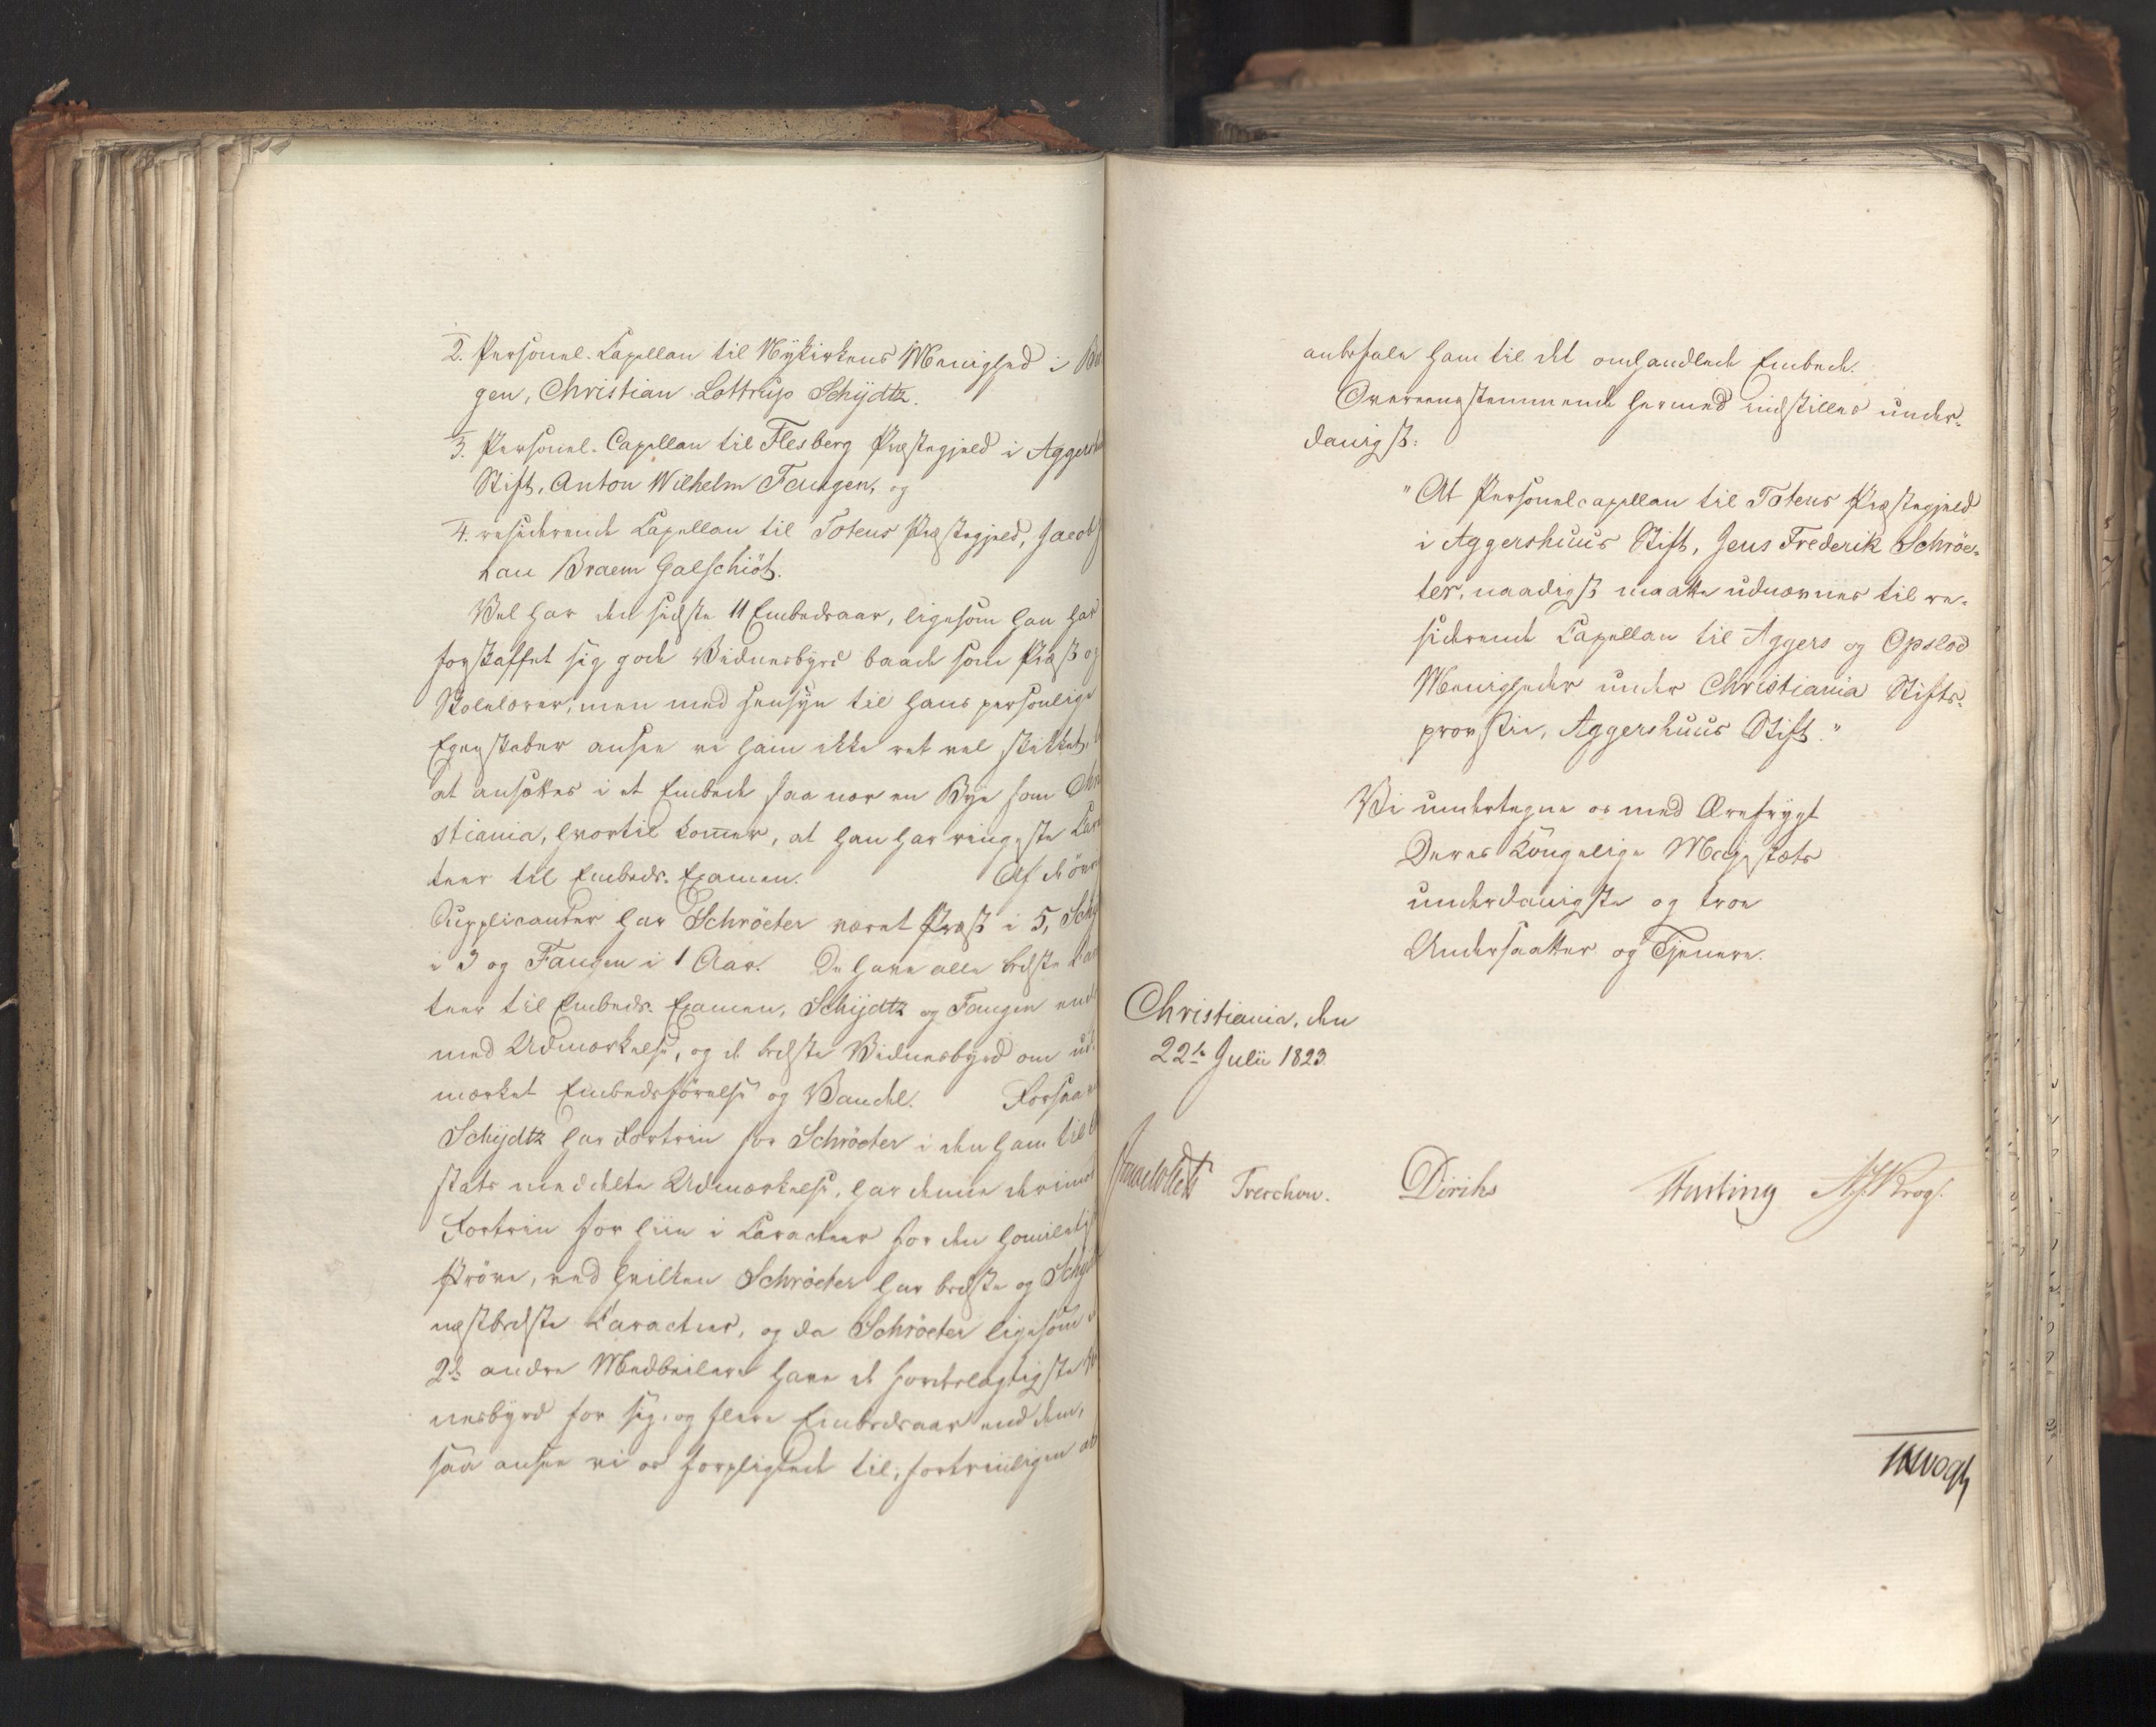 2. Personel-Capellan til Nykirkens Menighed i Ber
gen, Christian Lottrup Schydtz.
3. Personel-Capellan til Flesberg Præstegjeld i Aggersh
Stift, Anton Wilhelm Fangen, og
4. residerende Capellan til Totens Præstegjeld, Jacob
han Braem Galschiöt.
Vel har den sidste 11 Embedsaar, ligesom han har
forskaffet sig gode Vidnesbyrd baade som Præst og
Skolelærer, men med Hensyn til hans personlige
Egenskaber ansee vi ham ikke ret vel skikket,
at ansættes i et Embede saa nær en Bye som Chri
stiania, hvortil kommer, at han har ringeste Cara
teer til Embeds-Examen. Af de övr
Supplicanter har Schröeter været Præst i 5, Schy
i 3 og Fangen i 1 Aar. De have alle bedste Car
teer til Embeds-Examen, Schydtz og Fangen end
med Udmærkelse, og de bedste Vidnesbyrd om ud-
mærket Embedsförelse og Vandel. Forsaa
Schydtz har Fortrin for Schröeter i den ham til
stats meddelte Udmærkelse, har denne derimod
Fortrin for hiin i Caracteer for den homiletis
Pröve, ved hvilken Schröeter har bedste og Schyd
næstbedste Caracteer, og da Schröeter ligesom
2de andre Medbeilere have de fordelagtigste
nesbyrd for sig, og flere Embedsaar end dem,
saa ansee vi os forpligtede til, fortrinligen at
anbefale ham til det omhandlede Embede.
Overeensstemmende hermed indstilles under-
danigst:
"At Personelcapellan til Totens Præstegjeld
i Aggershuus Stift, Jens Frederik Schröe-
ter, naadigst maatte udnævnes til re-
siderende Capellan til Aggers og Opslod
Menigheder under Christiania Stifts-
provstie, Aggershuus Stift."
Vi undertegne os med Ærefrygt
Deres Kongelige Majestæts
underdanigste og troe
Undersaatter og Tjenere.
Christiania, den
22de Julii 1823.
Treschow. Diriks Krog.